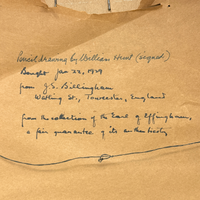 Pencil drawing by William Hunt (signed).
Bought Jan 22, 1939
from J.S. Billingham
Watling St., Towcester, England
from the collection of the Earl of Effingham,
a fair guarantee of its authenticity